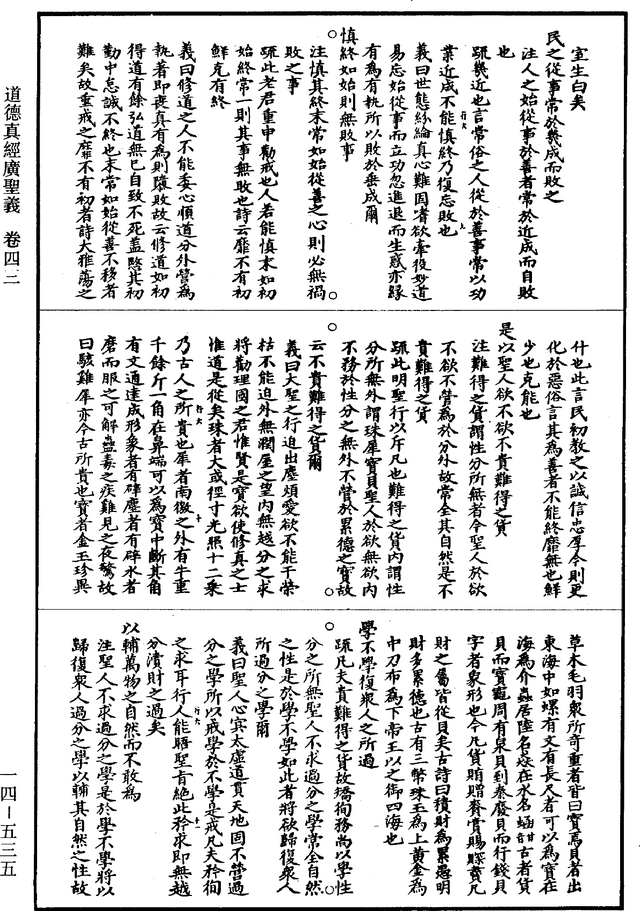 道德真經廣聖義　卷四三
室生白矣
民之從事常於幾成而敗之
注人之始從事於善者常於近成而自敗
也
疏幾近也言常俗之人從於善事常以功
業近成不能慎終乃復忘敗也
義曰世態紛綸真心難固嗜欲牽役妙道
易忘始從事而立功忽進退而生惑亦緣
有為有執所以敗於垂成爾
慎終如始則無敗事
注慎其終末常如始從善之心則必無禍
敗之事
疏此老君重申勸戒也人若能慎末如初
始終常一則其事無敗也詩云靡不有初
鮮克有終
義曰修道之人不能委心順道分外營為
執著即喪真有為則隳敗故云修道如初
得道有餘弘道無已自致不死蓋愍其初
勤中怠誠不終也末常如始從善不移者
難矣故重戒之靡不有初者詩大雅蕩之
什也此言民初教之以誠信忠厚令則更
化於惡俗言其為善者不能終靡無也鮮
少也克能也
是以聖人欲不欲不貴難得之貨
注難得之貨謂性分所無者令聖人於欲
不欲不營為於分外故常全其自然是不
貴難得之貨
疏此明聖行以斥凡也難得之貨內謂性
分所無外謂珠犀寶貝聖人於欲無欲內
不務於性分之無外不營於累德之寶故
云不貴難得之貨爾
義曰大聖之行迫出塵煩愛欲不能干榮
枯不能迫外無潤屋之望內無越分之求
將勸理國之君惟賢是寶欲使修真之士
惟道是從矣珠者大或徑寸光照十二乘
乃古人之所貴也犀者南徼之外有牛重
千餘斤一角在鼻端可以為寶中斷其角
有文通達成形象者有辟塵者有辟水者
磨而服之可解蠱毒之疾雞見之夜驚故
曰駭雞犀亦今古所貴也寶者金玉珍異
草木毛羽衆所奇重者皆曰寶焉貝者出
東海中如螺有文有長尺者可以為寶在
海為介蟲居陸名猋在水名蜬古者貨
貝而寶龜周有泉貝到秦廢貝而行錢貝
字者象形也今凡貨賄賵賚賞賜賝賣凡
財之屬皆從貝矣古詩曰積財為累愚明
財多累德也古有三幣珠玉為上黃金為
中刀布為下帝王以之御四海也
學不學復衆人之所過
疏凡夫貴難得之貨故矯徇務尚以學性
分之所無聖人不求過分之學常全自然
之性是於學不學如此者將欲歸復衆人
所過分之學爾
義曰聖人心冥太虛道貫天地固不營過
分之學所以戒學於不學是戒凡夫矜徇
之求耳行人能晤聖旨絕此矜求即無越
分瀆財之過矣
以輔萬物之自然而不敢為
注聖人不求過分之學是於學不學將以
歸復衆人過分之學以輔其自然之性故
一四－五三五